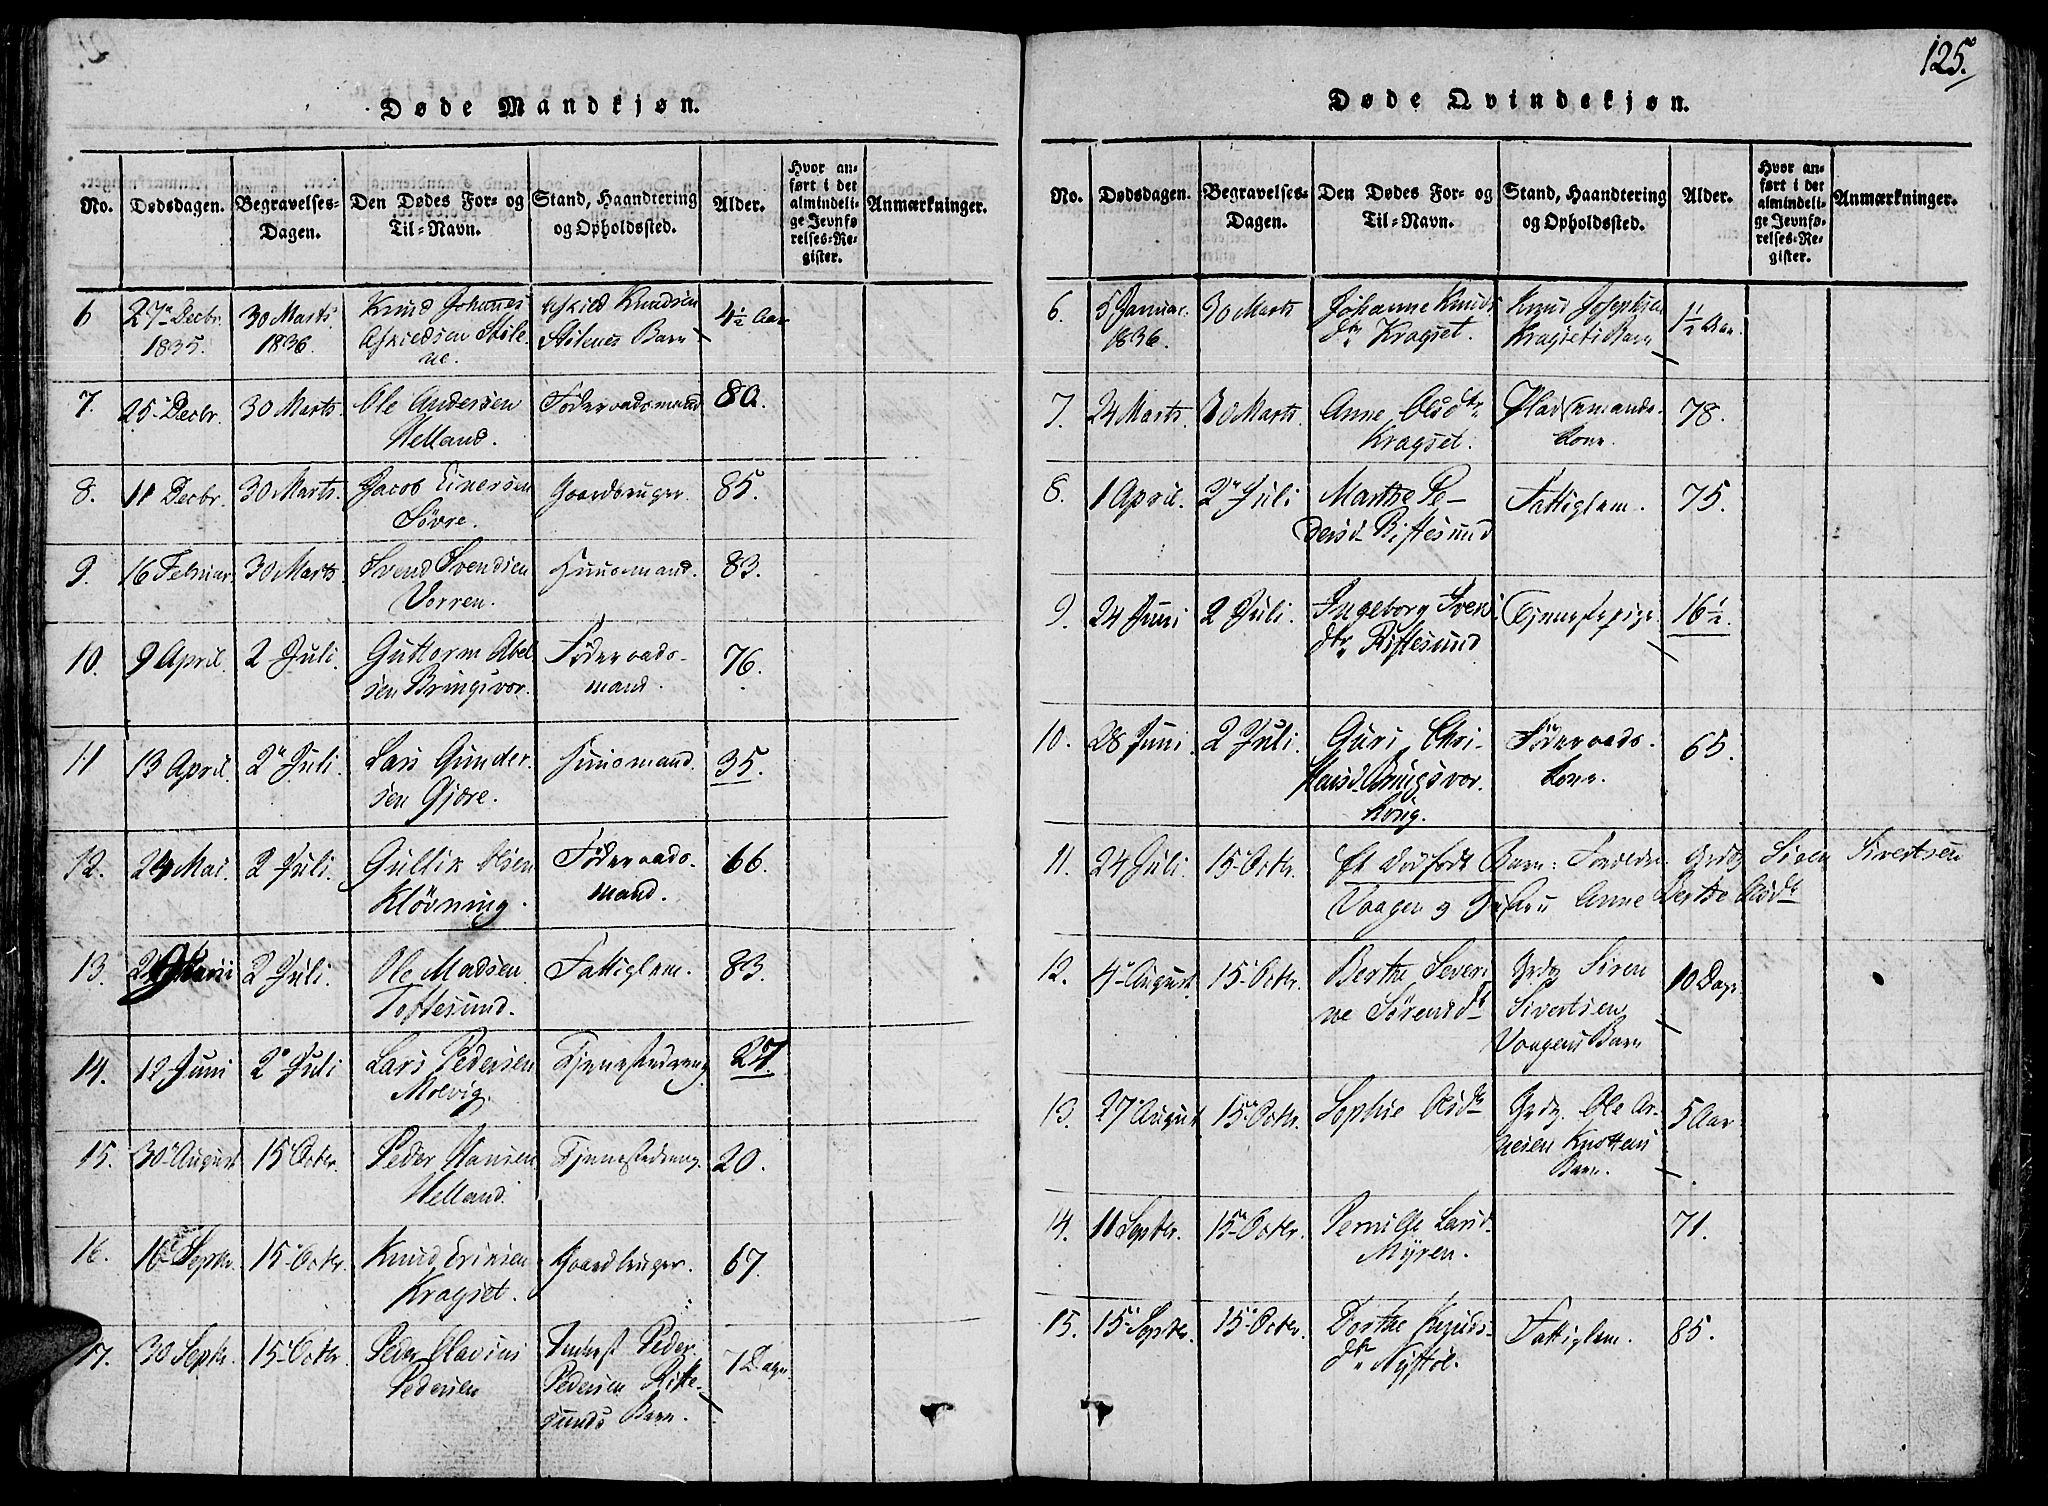 125.
Døde Mandkjøn.
No. Dødsdagen. Begravelses-Dagen. Den Dødes For- og Til-Navn. Stand, Haandtering og Opholdssted. Alder. Hvor anført i det almindelige Jevnførelses-Register. Anmærkninger.
6 27 Decbr. 1835. 30 Marts 1836. Knud Johannes Stilene Knudsen Stilenes Barn 4½ Aar
7. 25 Decbr. 30 Marts. Ole Andersen Helland. Föderaadsmand 80.
8. 11 Decbr. 30 Marts. Jacob Einersen Sövre. Gaardbruger. 85.
9. 16 Februar. 30 Marts Svend Svendsen Vorren. Huusmand. 83.
10. 9 April. 2 Juli. Guttorm Abelsen Bringsvor. Föderaadsmand. 76.
11 13 April. 2 Juli. Lars Gundersen Gjöre. Huusmand. 35.
12. 24 Mai. 2 Juli. Gullik Olsen Klövning. Föderaadsmand. 66.
13. 2 Juli. Ole Madsen Toftesund. Fattiglem. 83.
14. 12 Juni 2 Juli Lars Pedersen Molvig. Tjenestedreng 27.
15. 30 August 15 Octbr. Peder Hansen Helland. Tjenestedreng. 20.
16. 16 Septbr. 15 Octbr. Knud Erinsen Kragset. Gaardbruger. 67.
17. 30 Septbr. 15 Octbr. Peder Olavius Pedersen Peder Pedersen Riftesunds Barn. 7 Dage
Døde Qvindekjøn.
No. Dødsdagen. Begravelses-Dagen. Den Dødes For- og Til-Navn. Stand, Haandtering og Opholdssted. Alder. Hvor anført i det almindelige Jevnførelses-Register. Anmærkninger.
6. 5 Januar. 1836. 30 Marts Johanne Knudsdtr Kragset. Knud Josephsen Kragsets Barn 1½ Aar.
7. 24 Marts 30 Marts. Anne Olsdtr Kragset. Pladsemands-kone. 78.
8. 1 April. 2 Juli Marthe Pedersd Riftesund Fattiglem. 75.
9. 24 Juni 2 Juli. Ingeborg Svensdtr Riftesund Tjenestepige. 16½.
10. 28 Juni. 2 Juli. Guri Christensd Bringsvor. Föderaads-kone. 65.
11. 24 Juli. 15 Octbr. Et dödfödt Barn: Forældre Grdbr Siven Sivertsen
Vaagen og Anne Berthe Olsdtr
12. 4 August. 15 Octbr. Berthe Severine Sörensdtr Grdbr Sören Sivertsen Vaagens Barn 10 Dage
13. 27 August 15 Octbr. Sophie Olsdtr Grdbr. Ole Arnesen Knottens Barn. 5 Aar
14. 11 Septbr. 15 Octbr. Pernille Larsd. Myren. 71.
15. 15 Septbr. 15 Octbr. Dorthe Knudsdtr Nystöl. Fattiglem. 85.